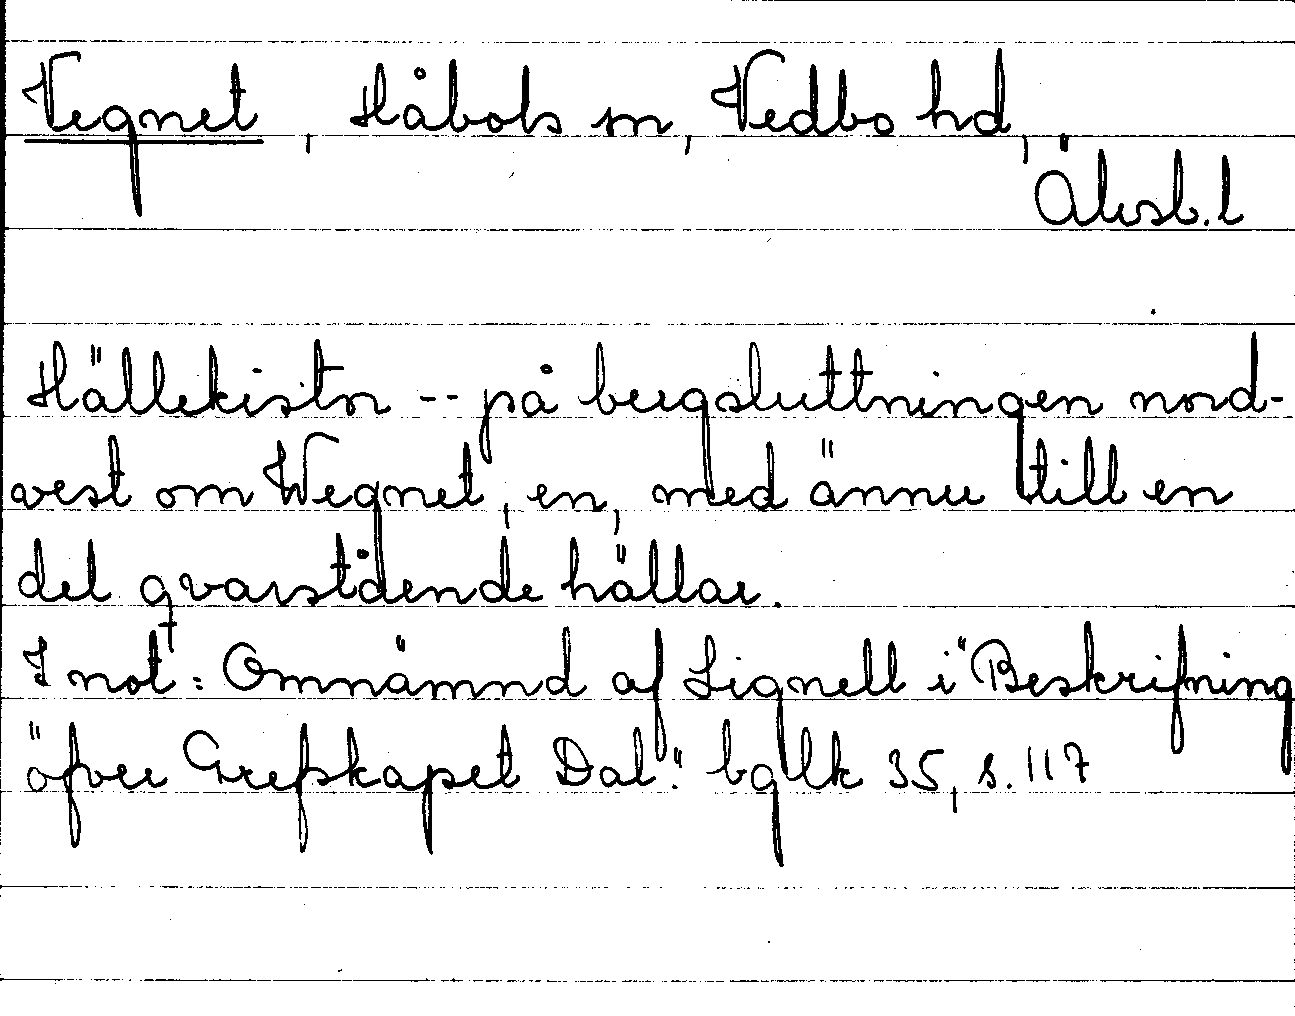 Vegnet, Håbols sn, Vedbo hd,
Älvsb. l
Hällekistor -- på bergsluttningen nord-
vest om Wegnet, en, med ännu till en
del qvarstående hällar.
I not: Omnämnd af Lignell i "Beskrifning
öfver Grefskapet Dal." bglk 35, s. 117